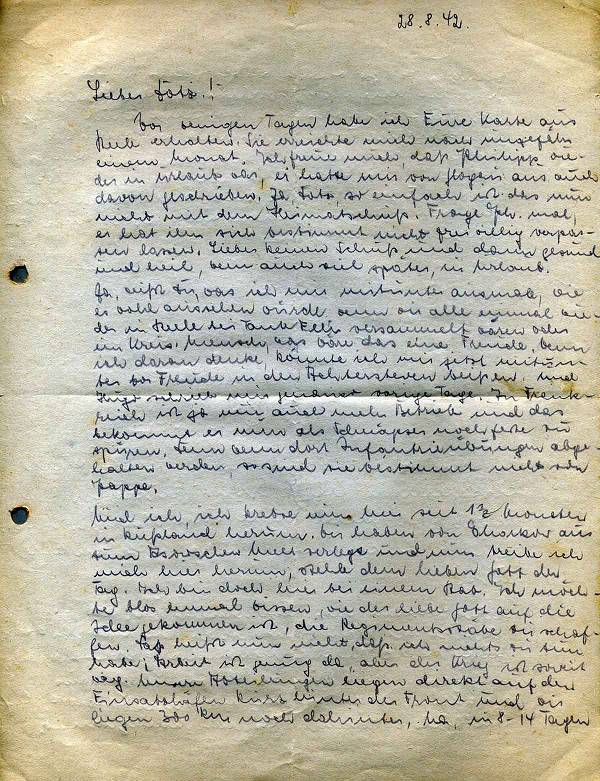 28.8.42.
Lieber
Vor einigen Tagen habe ich Eure Karte aus
erhalten. Sie erreichte mich nach ungefähr
einem Monat. Ich freue mich, daß Philipp wie-
der in Urlaub war, er hatte mir von aus auch
davon geschrieben. Ja, so einfach ist das nun
nicht mit dem Heimatschuß. Frage mal,
er hat ihn sich bestimmt nicht freiwillig verpas-
sen lassen. Lieber keinen Schuß und dann gesund
und heil, wenn auch viel später, in Urlaub.
Ja, weißt Du, was ich mir mitunter ausmale, wie
es wohl aussehen würde wenn wir alle einmal wie-
der in bei Tante versammelt wären oder
im Kreis. Mensch, was wäre das eine Freude, wenn
ich daran denke, könnte ich mir jetzt mitun-
ter vor Freude in den beißen. Und
schrieb mir Tage. In Frank-
reich ist ja nun auch mehr Betrieb und das
bekommt er nun als noch fest zu
spüren. Denn wenn dort Infanterieübungen abge-
halten werden, so sind sie bestimmt nicht von
Pappe.
Und ich, ich krebse nun hier seit 1½ Monaten
in Rußland herum. Wir haben von Charkow aus
zum Asowschen Meer verlegt und nun treibe ich
mich hier herum, stehle dem lieben Gott den
Tag. Ich bin doch hier bei einem Stab. Ich möch-
te blos einmal wissen, wie der liebe Gott auf die
Idee gekommen ist, die Regimentsstäbe zu schaf-
fen. Das heißt nun nicht, daß ich nichts zu tun
habe; Arbeit ist genug da, aber der Krieg ist so weit
weg. Unsere Abteilungen liegen direkt auf den
Einsatzhäfen kurz hinter der Front und wir
liegen 300 km noch dahinter. Na, in 8-14 Tagen